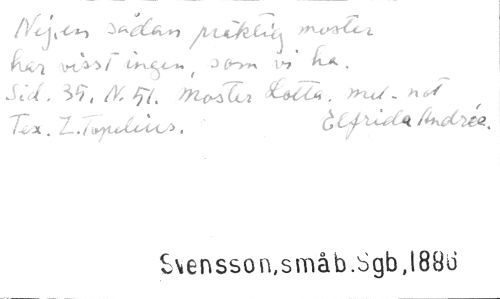 Nej, en sådan präktig moster
har visst ingen, som vi ha.
Sid. 35. N. 51. Moster Lotta. mel-not
Tex. Z. Topelius. Elfrida Andrée.
Svensson, småb. Sgb, 1886